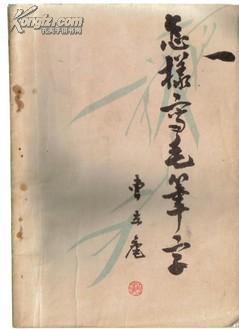 怎樣寫毛筆字
曹立庵
Kongfz.com
孔夫子旧书网